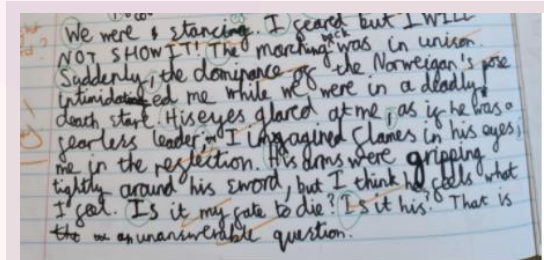 We were stancing. I scared but I WILL
NOT SHOW IT! The marching was in unison.
Suddenly, the dominance of the Norweigan's pose
intimidated me while we were in a deadly
death stare. His eyes glared at me, as if he was a
fearless leader, I imagined flames in his eyes,
me in the reflection. His arms were gripping
tightly around his sword, but I think he feels what
I feel. Is it my fate to die? Is it his? That is
an unanswerable question.